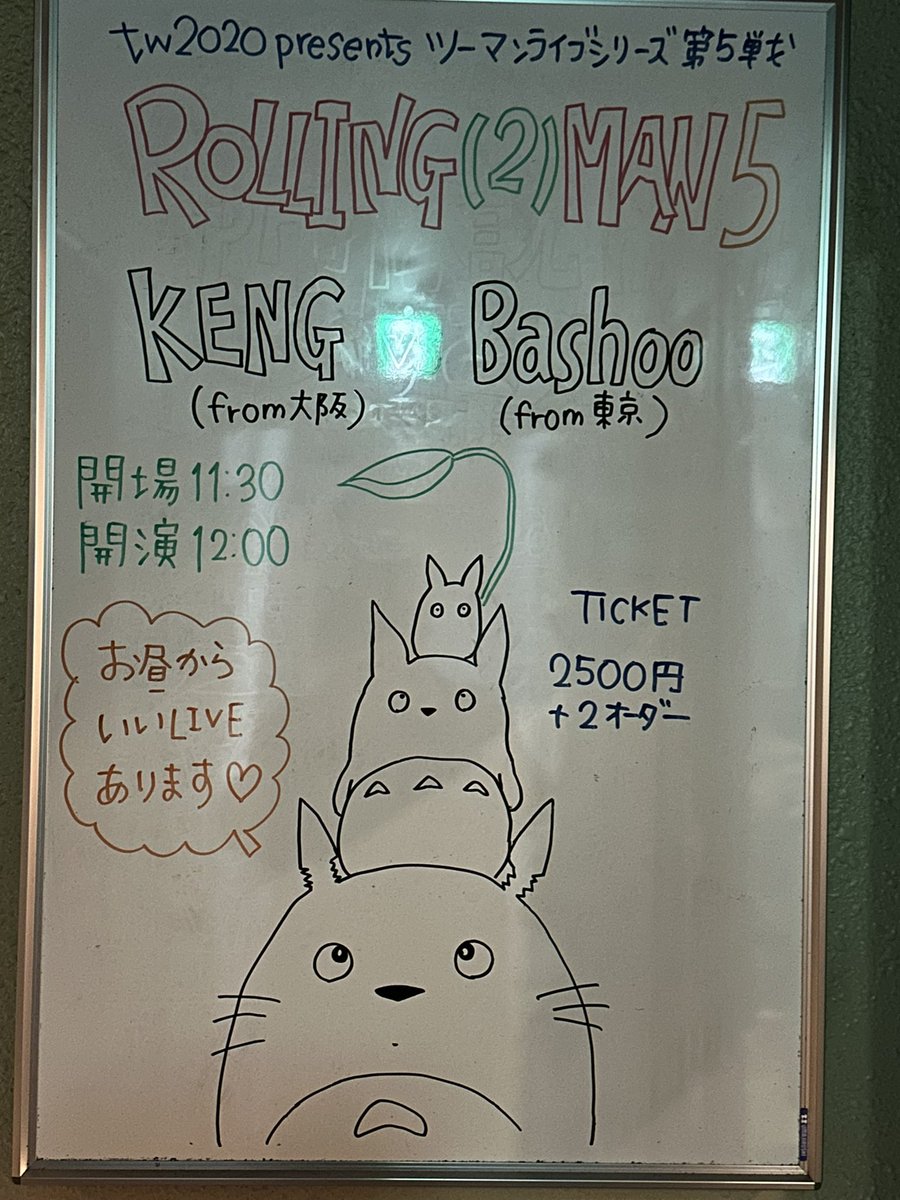 tw2020 presents ツーマンライブシリーズ 第5弾だ
ROLLING (2) MAN 5
KENG
Bashoo
(from 大阪)
(from 東京)
開場 11:30
開演 12:00
お昼から
いいLIVE
あります♡
TICKET
2500円
+2オーダー